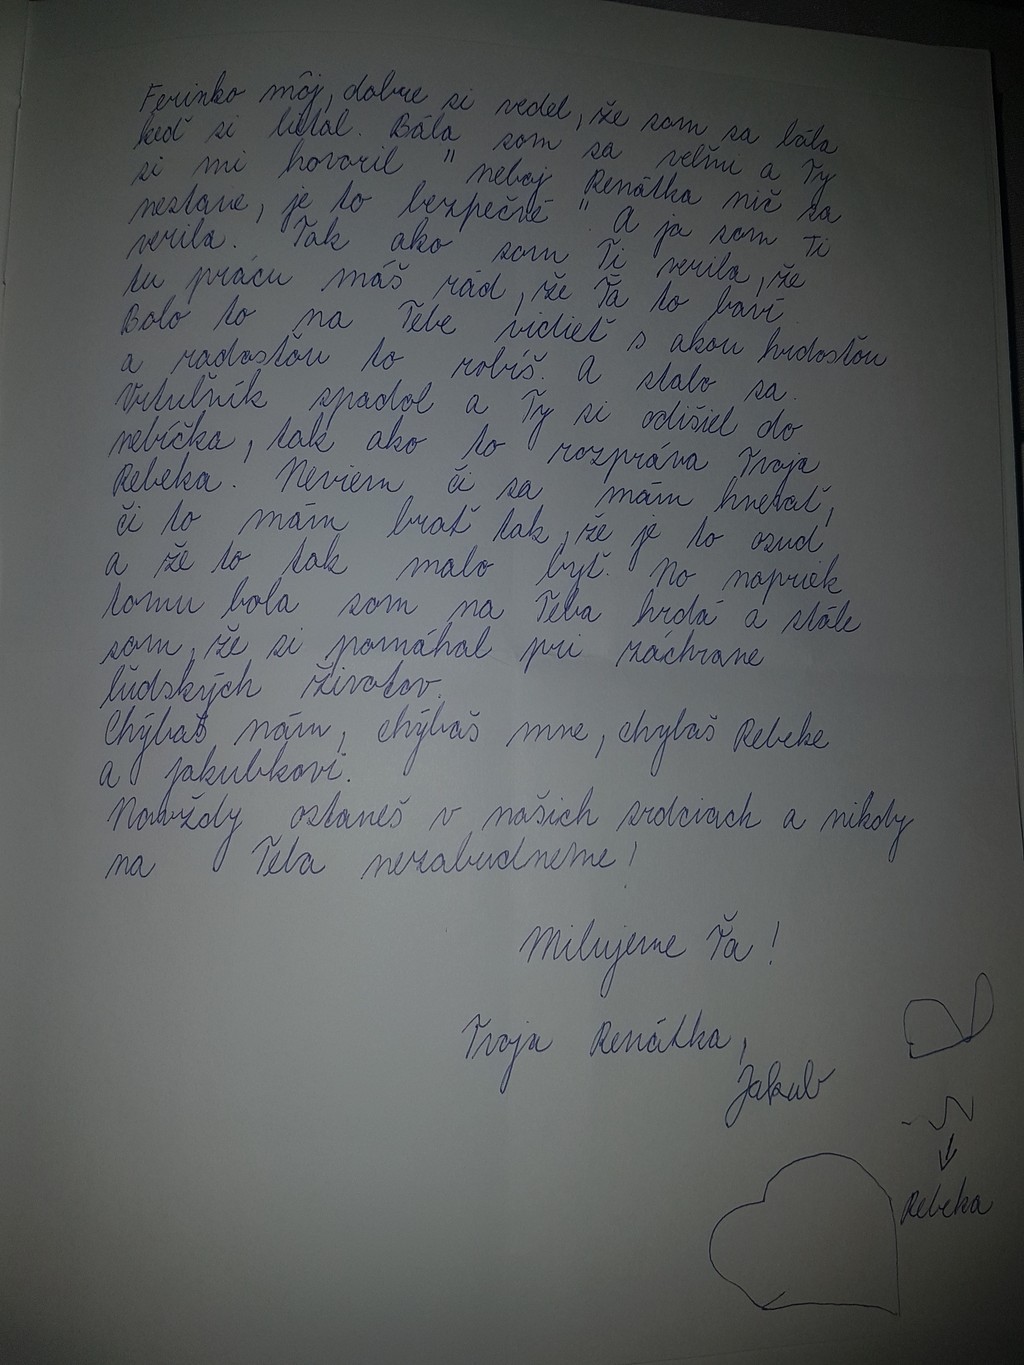 Ferinko môj, dobre si vedel, že som sa bála
keď si lietal. Bála som sa veľmi a Ty
si mi hovoril "neboj Renátka nič sa
nestane, je to bezpečné". A ja som Ti
verila. Tak ako som Ti verila, že
tu prácu máš rád, že Ťa to baví.
Bolo to na Tebe vidieť s akou hrdosťou
a radosťou to robíš. A stalo sa.
Vrtuľník spadol a Ty si odišiel do
nebíčka, tak ako to rozpráva Tvoja
Rebeka. Neviem či sa mám hnevať,
či to mám brať tak, že je to osud
a že to tak malo byť. No napriek
tomu bola som na Teba hrdá a stále
som, že si pomáhal pri záchrane
ľudských životov.
Chýbaš nám, chýbaš mne, chýbaš Rebeke
a Jakubkovi.
Navždy ostaneš v našich srdciach a nikdy
na Teba nezabudneme!
Milujeme Ťa!
Tvoja Renátka,
Jakub
Rebeka